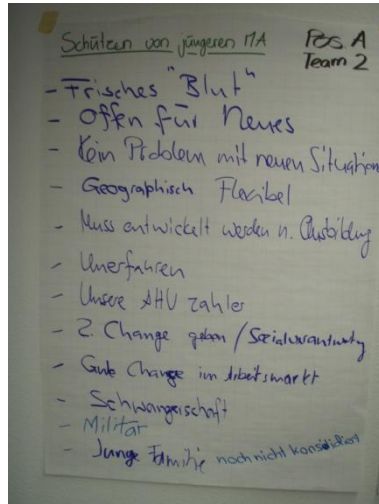 Schützen von jüngeren MA
Pos. A
Team 2
- Frisches "Blut"
- Offen für Neues
- Kein Problem mit neuen Situation
- Geographisch Flexibel
- Muss entwickelt werden n. Ausbildung
- Unerfahren
- Unsere AHV zahler
- 2. Change geben / Sozialverantwortung
- Gute Change im Arbeitsmarkt
- Schwangerschaft
- Militär
- Junge Familie noch nicht konsidiert